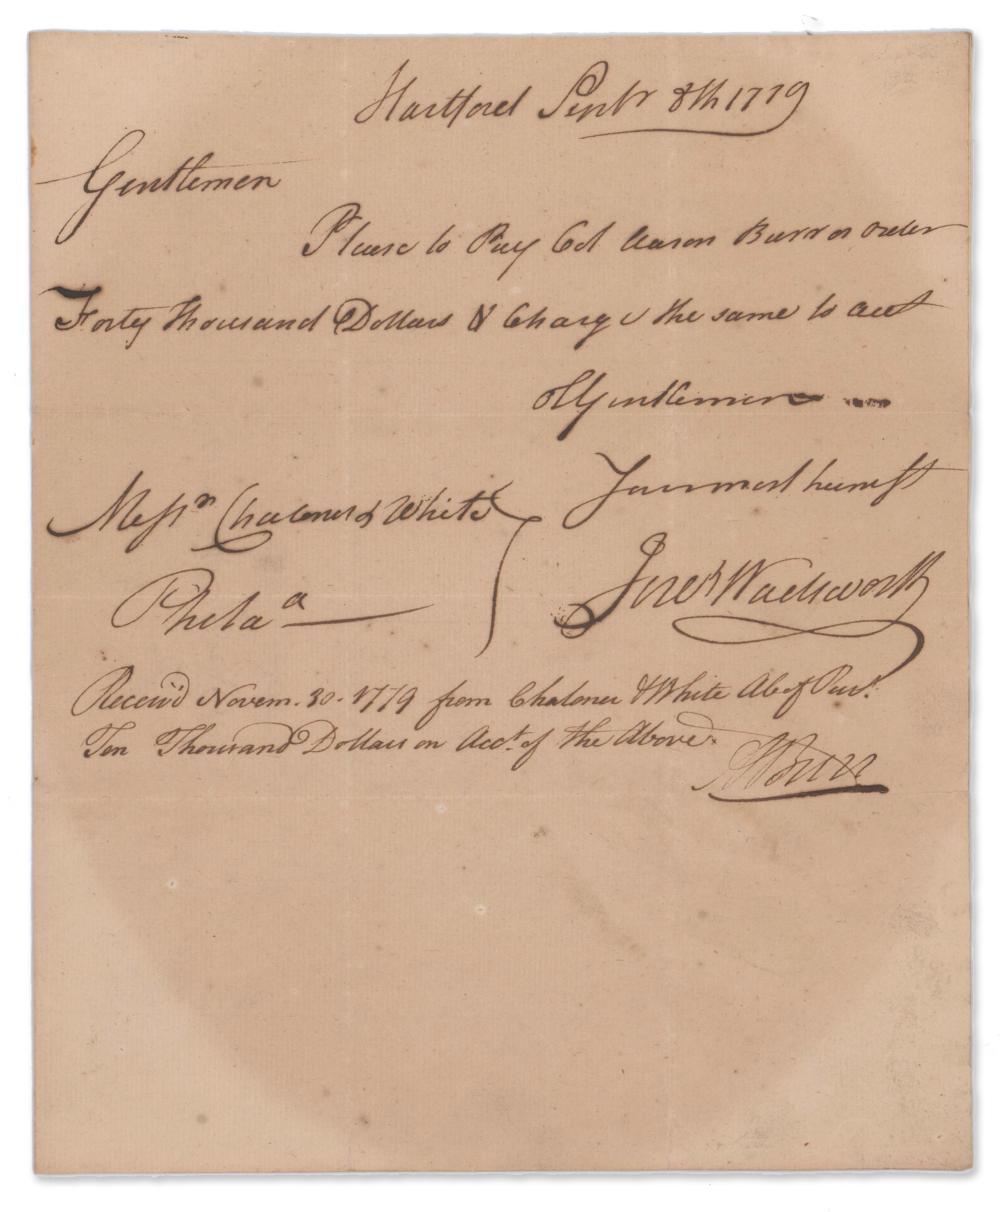 Hartford Septr 8th 1779
Gentlemen
Please to Pay Col Aaron Burr or order
Forty thousand Dollars & Charge the same to acct
of Gentlemen
Your most humst
Messrs Chaloner & White
Jere Wadsworth
Phila a
Receiv'd Novem. 30. 1779 from Chaloner & White
Ten Thousand Dollars on Acct. of the Above.
A Burr